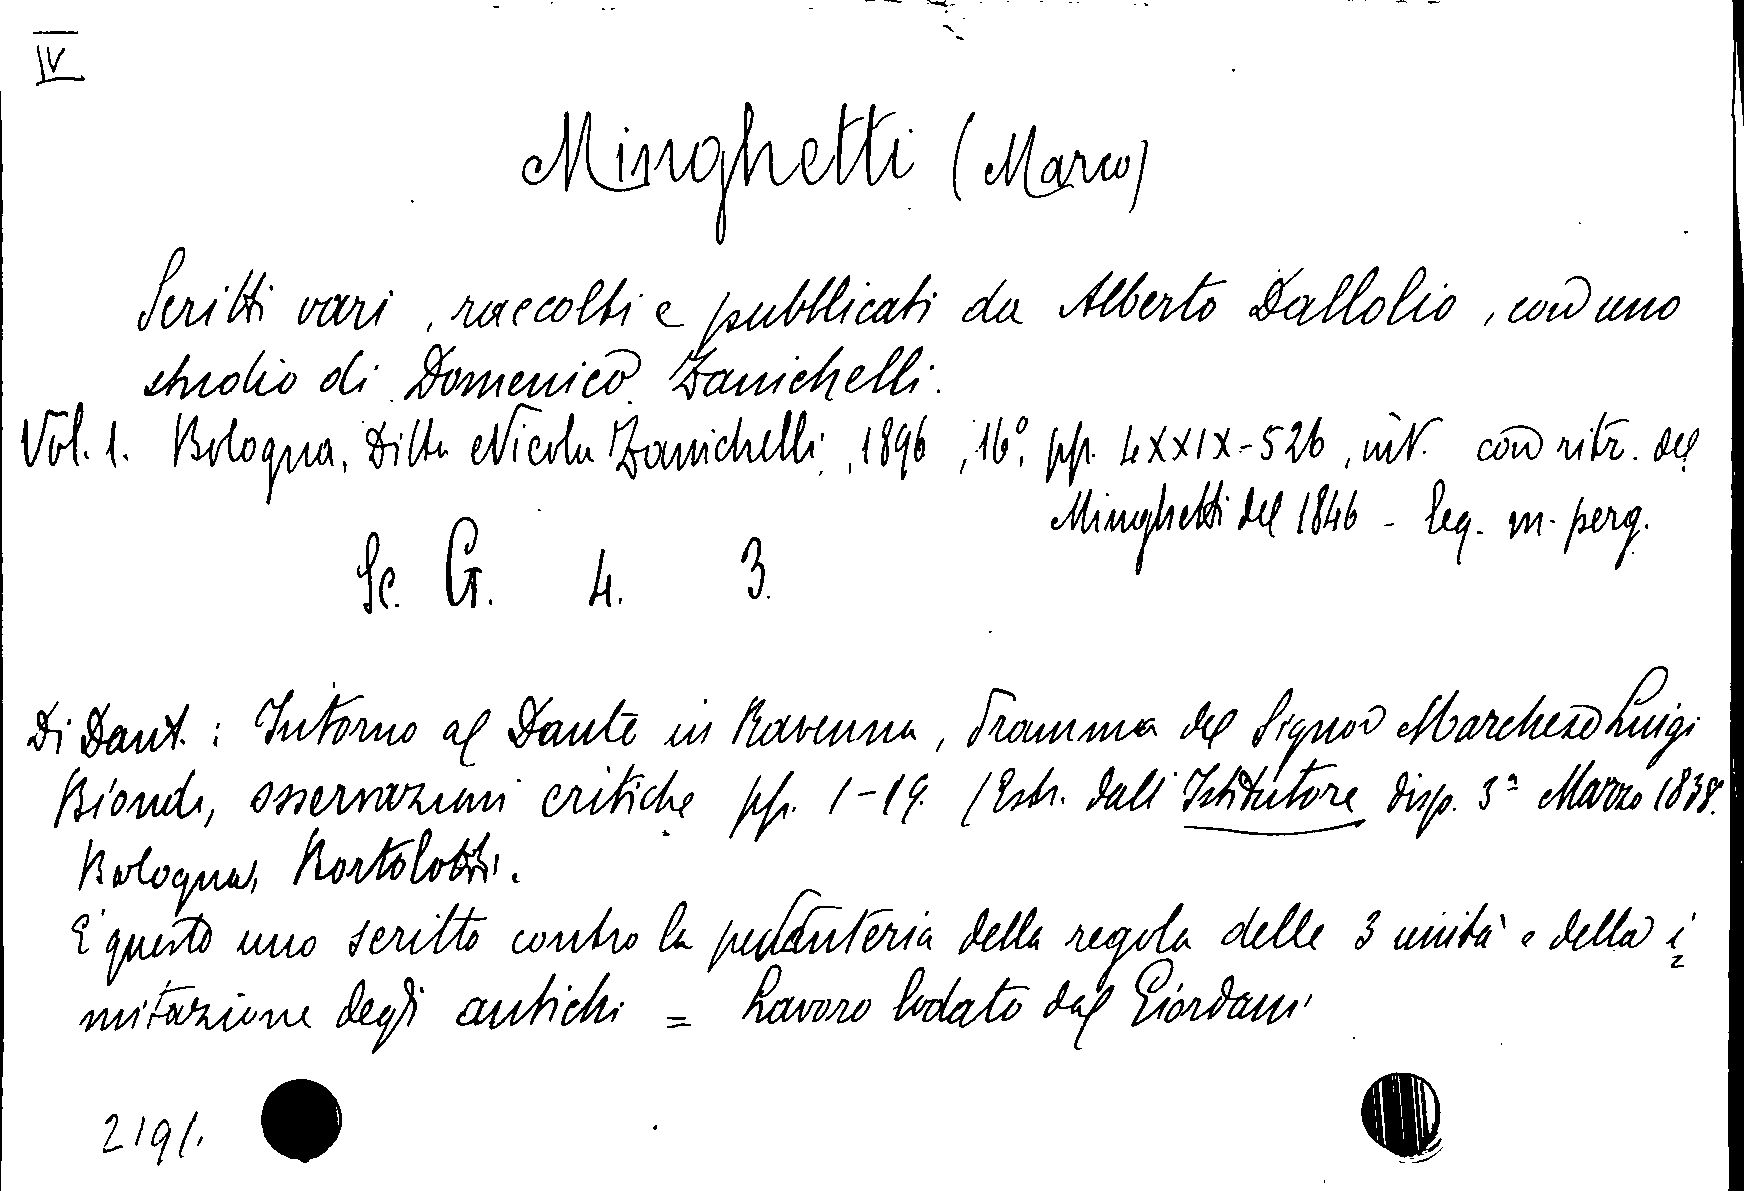 IV
Minghetti (Marco)
Scritti vari, raccolti e pubblicati da Alberto Dallolio, con uno
studio di Domenico Zanichelli.
Vol. 1. Bologna, Ditta Nicola Zanichelli, 1896, 16°, pp. LXXIX-526, int. con ritr. del
Minghetti del 1846 - leg. m. perg.
Sc. G. 4. 3.
Di Dant.: Intorno al Dante in Ravenna, Dramma del Signor Marchese Luigi
Biondi, osservazioni critiche pp. 1-19. (Estr. dall'Istitutore disp. 3ª Marzo 1838.
Bologna, Bortolotti.
E' questo uno scritto contro la pedanteria della regola delle 3 unità e della i=
mitazione degli antichi = Lavoro lodato dal Giordani
219/.